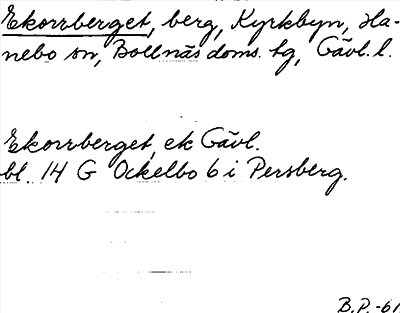 Ekorrberget, berg, Kyrkbyn, Ha-
nebo sn, Bollnäs doms. tg, Gävl. l.
Ekorrberget, ek Gävl.
bl. 14 G Ockelbo 6 i Persberg.
B.P. -61